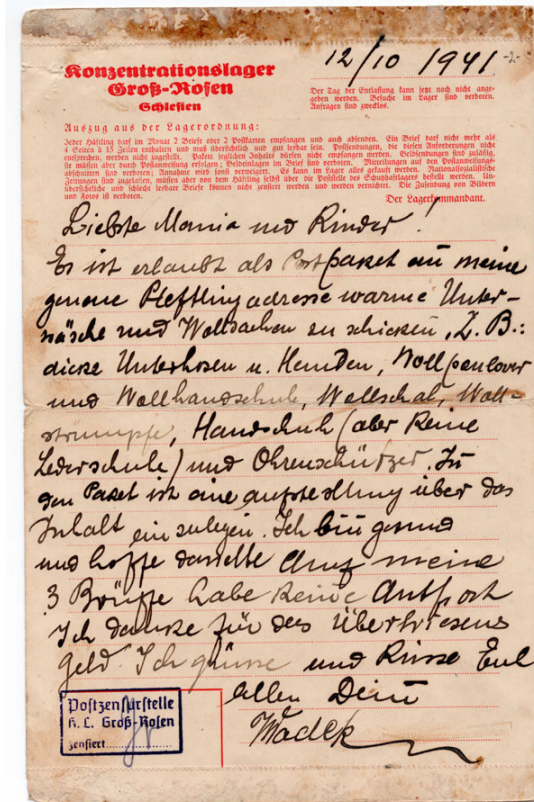 Konzentrationslager
Groß-Rosen
Schlesien
12/10 1941 -2-
Der Tag der Entlassung kann jetzt noch nicht ange-
geben werden. Besuche im Lager sind verboten.
Anfragen sind zwecklos.
Auszug aus der Lagerordnung:
Jeder Häftling darf im Monat 2 Briefe oder 2 Postkarten empfangen und auch absenden. Ein Brief darf nicht mehr als
4 Seiten à 15 Zeilen enthalten und muß übersichtlich und gut lesbar sein. Postsendungen, die diesen Anforderungen nicht
entsprechen, werden nicht zugestellt. Pakete jeglichen Inhalts dürfen nicht empfangen werden. Geldsendungen sind zulässig,
sie müssen aber durch Postanweisung erfolgen; Geldeinlagen im Brief sind verboten. Mitteilungen auf den Postanweisungs-
abschnitten sind verboten; Annahme wird sonst verweigert. Es kann im Lager alles gekauft werden. Nationalsozialistische
Zeitungen sind zugelassen, müssen aber von dem Häftling selbst über die Poststelle des Schutzhaftlagers bestellt werden. Un-
übersichtliche und schlecht lesbare Briefe können nicht zensiert werden und werden vernichtet. Die Zusendung von Bildern
und Fotos ist verboten.
Der Lagerkommandant.
Liebste Mania und Kinder!
Es ist erlaubt als Postpaket an meine
genaue Heftlingadresse warme Unter-
wäsche und Wollsachen zu schicken, Z. B.:
dicke Unterhosen u. Hemden, Wollpeulover
und Wollhandschule, Wollschal, Woll-
strümpfe, Handschuh (aber keine
Lederschule) und Ohrenschützer. In
den Paket ist eine aufstellung über das
Inhalt ein zulegen. Ich bin gesund
und hoffe dasselbe Auf meine
3 Brüffe habe keine Antfort
Ich danke für das Überwiesene
Geld. Ich grüsse und Küsse Eul
allen Dein
Wladek
Postzensurstelle
K. L. Groß-Rosen
zensiert